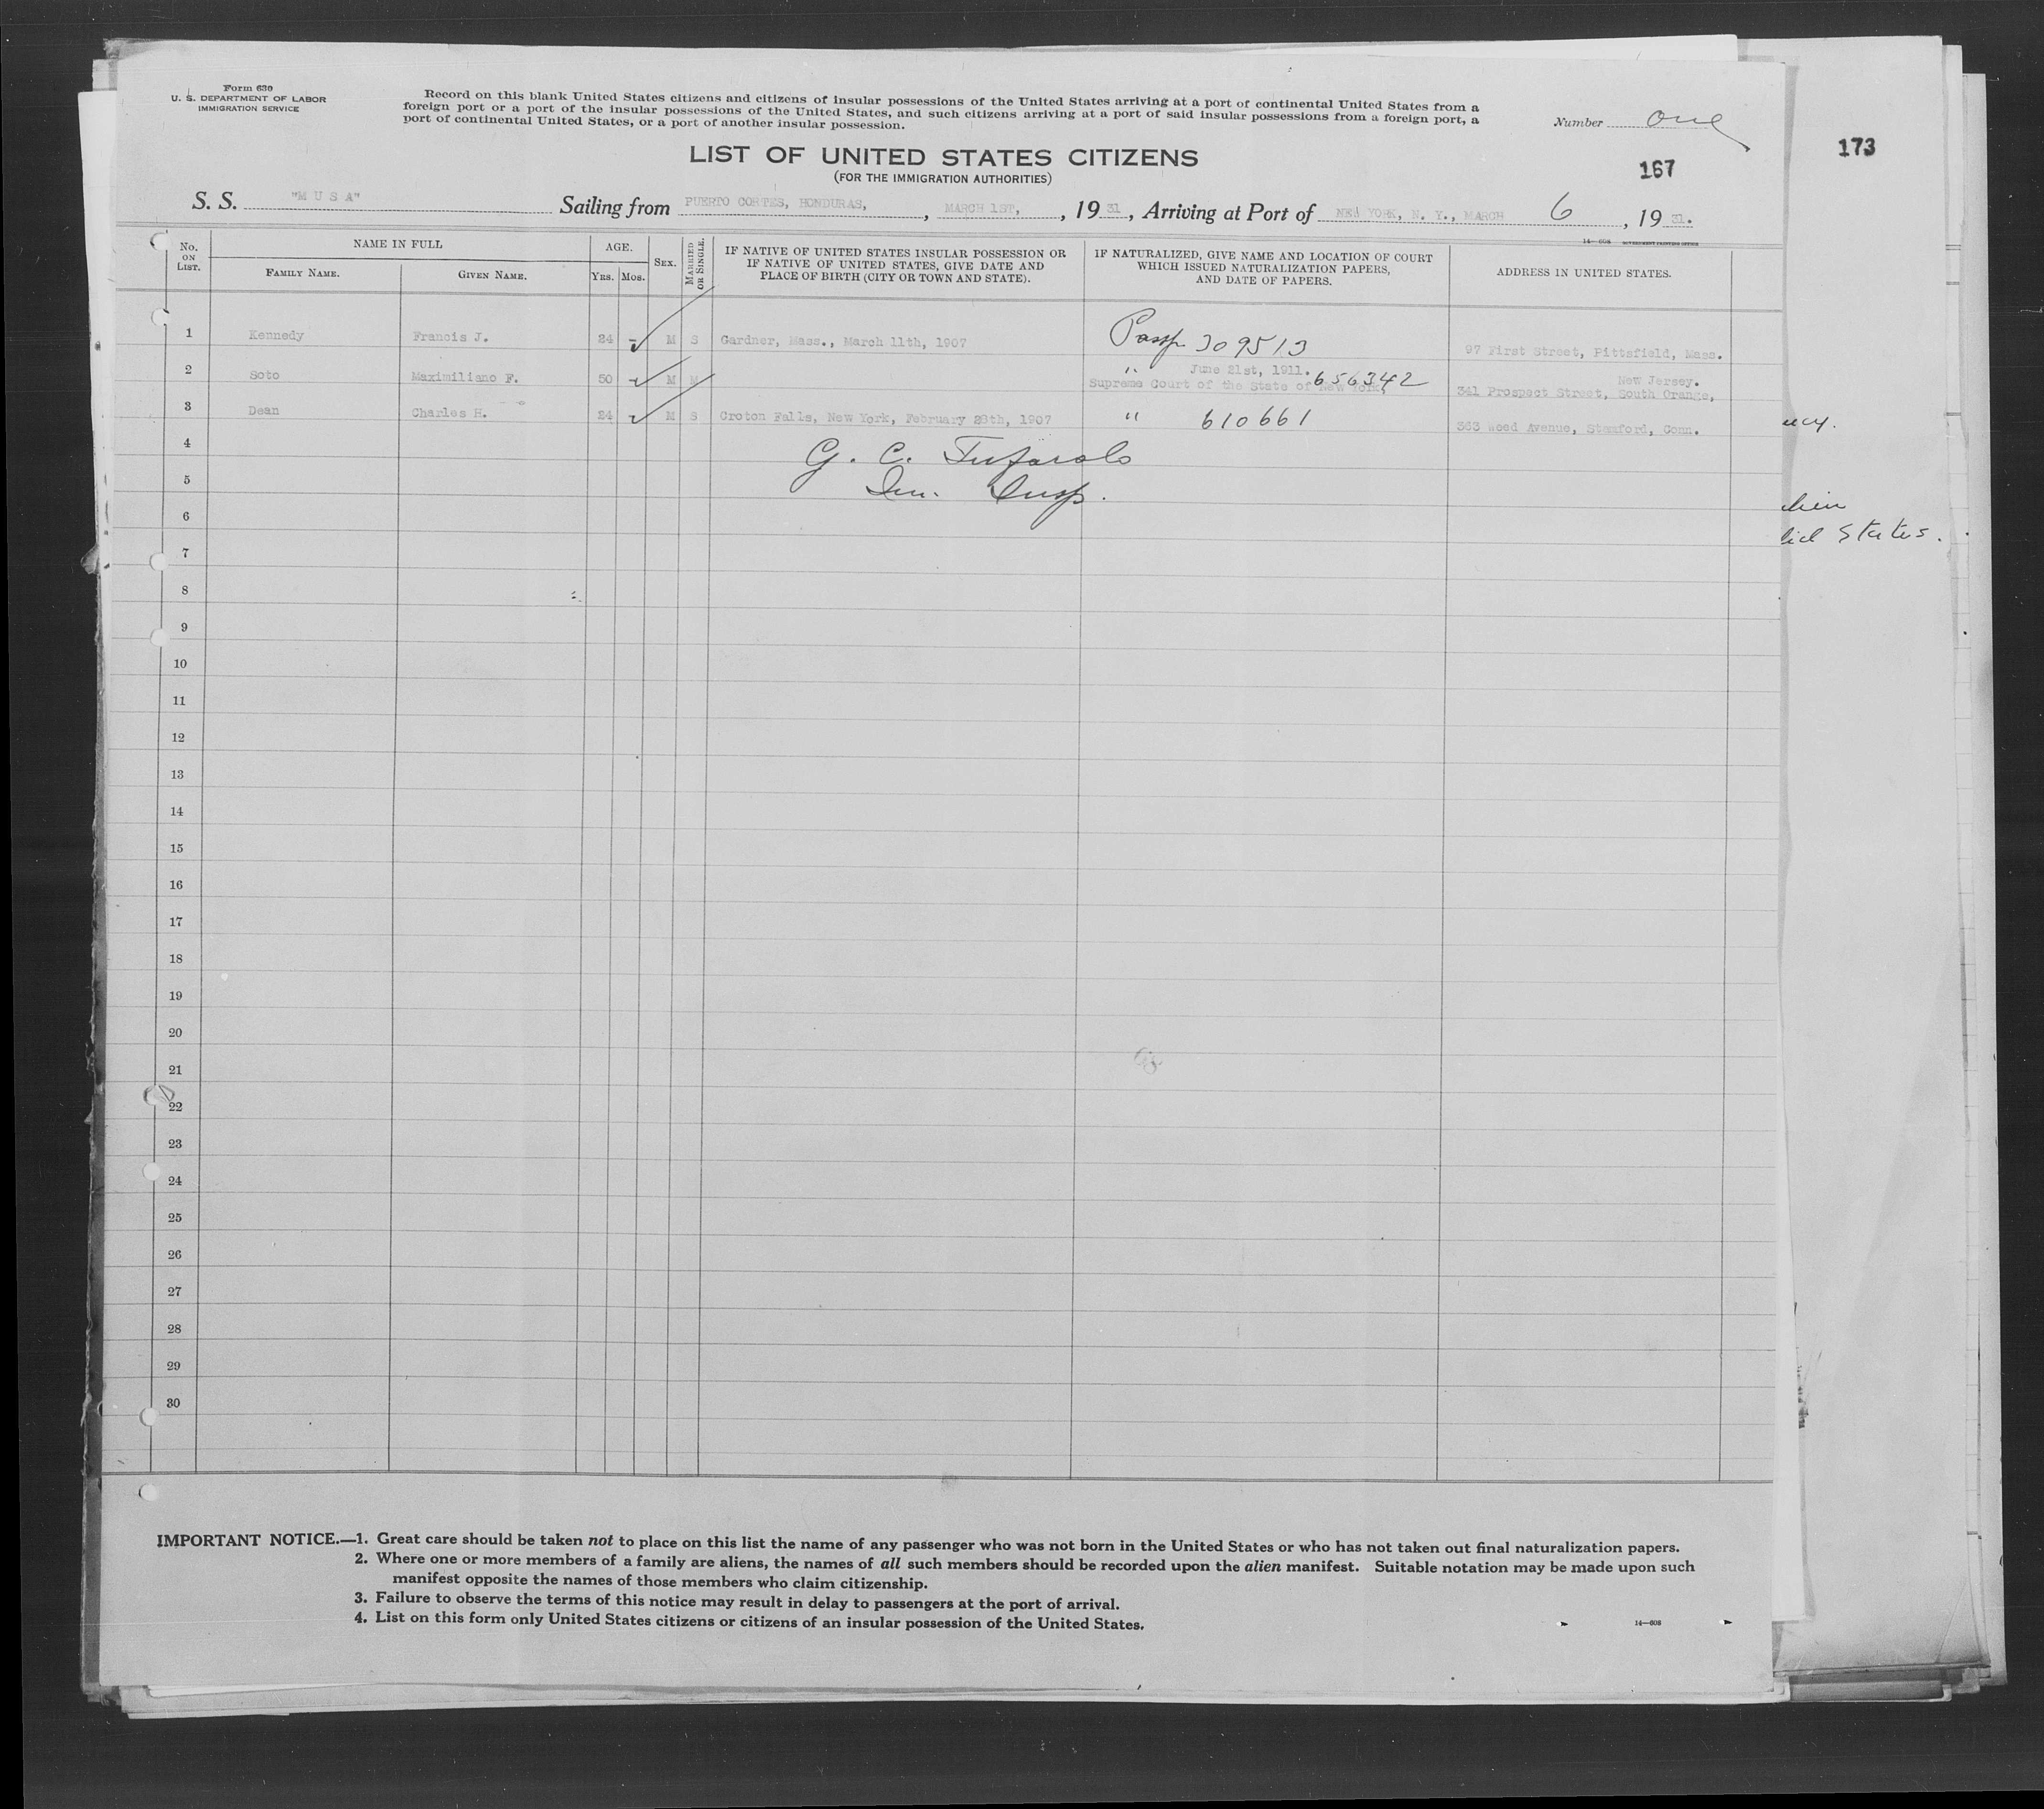 Form 630
U. S. DEPARTMENT OF LABOR
IMMIGRATION SERVICE
Record on this blank United States citizens and citizens of insular possessions of the United States arriving at a port of continental United States from a
foreign port or a port of the insular possessions of the United States, and such citizens arriving at a port of said insular possessions from a foreign port, a
port of continental United States, or a port of another insular possession.
Number one
173
167
LIST OF UNITED STATES CITIZENS
(FOR THE IMMIGRATION AUTHORITIES)
S. S. "M U S A" Sailing from PUERTO CORTES, HONDURAS, , MARCH 1ST, , 19 31, Arriving at Port of NEW YORK, N. Y., MARCH 6 , 19 31.
14—608 GOVERNMENT PRINTING OFFICE
No. ON LIST.
NAME IN FULL
FAMILY NAME.
GIVEN NAME.
AGE.
YRS.
MOS.
SEX.
MARRIED OR SINGLE.
IF NATIVE OF UNITED STATES INSULAR POSSESSION OR
IF NATIVE OF UNITED STATES, GIVE DATE AND
PLACE OF BIRTH (CITY OR TOWN AND STATE).
IF NATURALIZED, GIVE NAME AND LOCATION OF COURT
WHICH ISSUED NATURALIZATION PAPERS,
AND DATE OF PAPERS.
ADDRESS IN UNITED STATES.
1 Kennedy Francis J. 24 - M S Gardner, Mass., March 11th, 1907 Passp. 309513 97 First Street, Pittsfield, Mass.
2 Soto Maximiliano F. 50 - M M " June 21st, 1911. 656342 New Jersey.
Supreme Court of the State of New York, 341 Prospect Street, South Orange,
3 Dean Charles H. 24 - M S Croton Falls, New York, February 28th, 1907 " 610661 363 Weed Avenue, Stamford, Conn.
4
G. C. Tufarolo
5
Imm. Insp.
6
7
8
9
10
11
12
13
14
15
16
17
18
19
20
21
22
23
24
25
26
27
28
29
30
States.
IMPORTANT NOTICE.—1. Great care should be taken not to place on this list the name of any passenger who was not born in the United States or who has not taken out final naturalization papers.
2. Where one or more members of a family are aliens, the names of all such members should be recorded upon the alien manifest. Suitable notation may be made upon such
manifest opposite the names of those members who claim citizenship.
3. Failure to observe the terms of this notice may result in delay to passengers at the port of arrival.
4. List on this form only United States citizens or citizens of an insular possession of the United States.
14—608